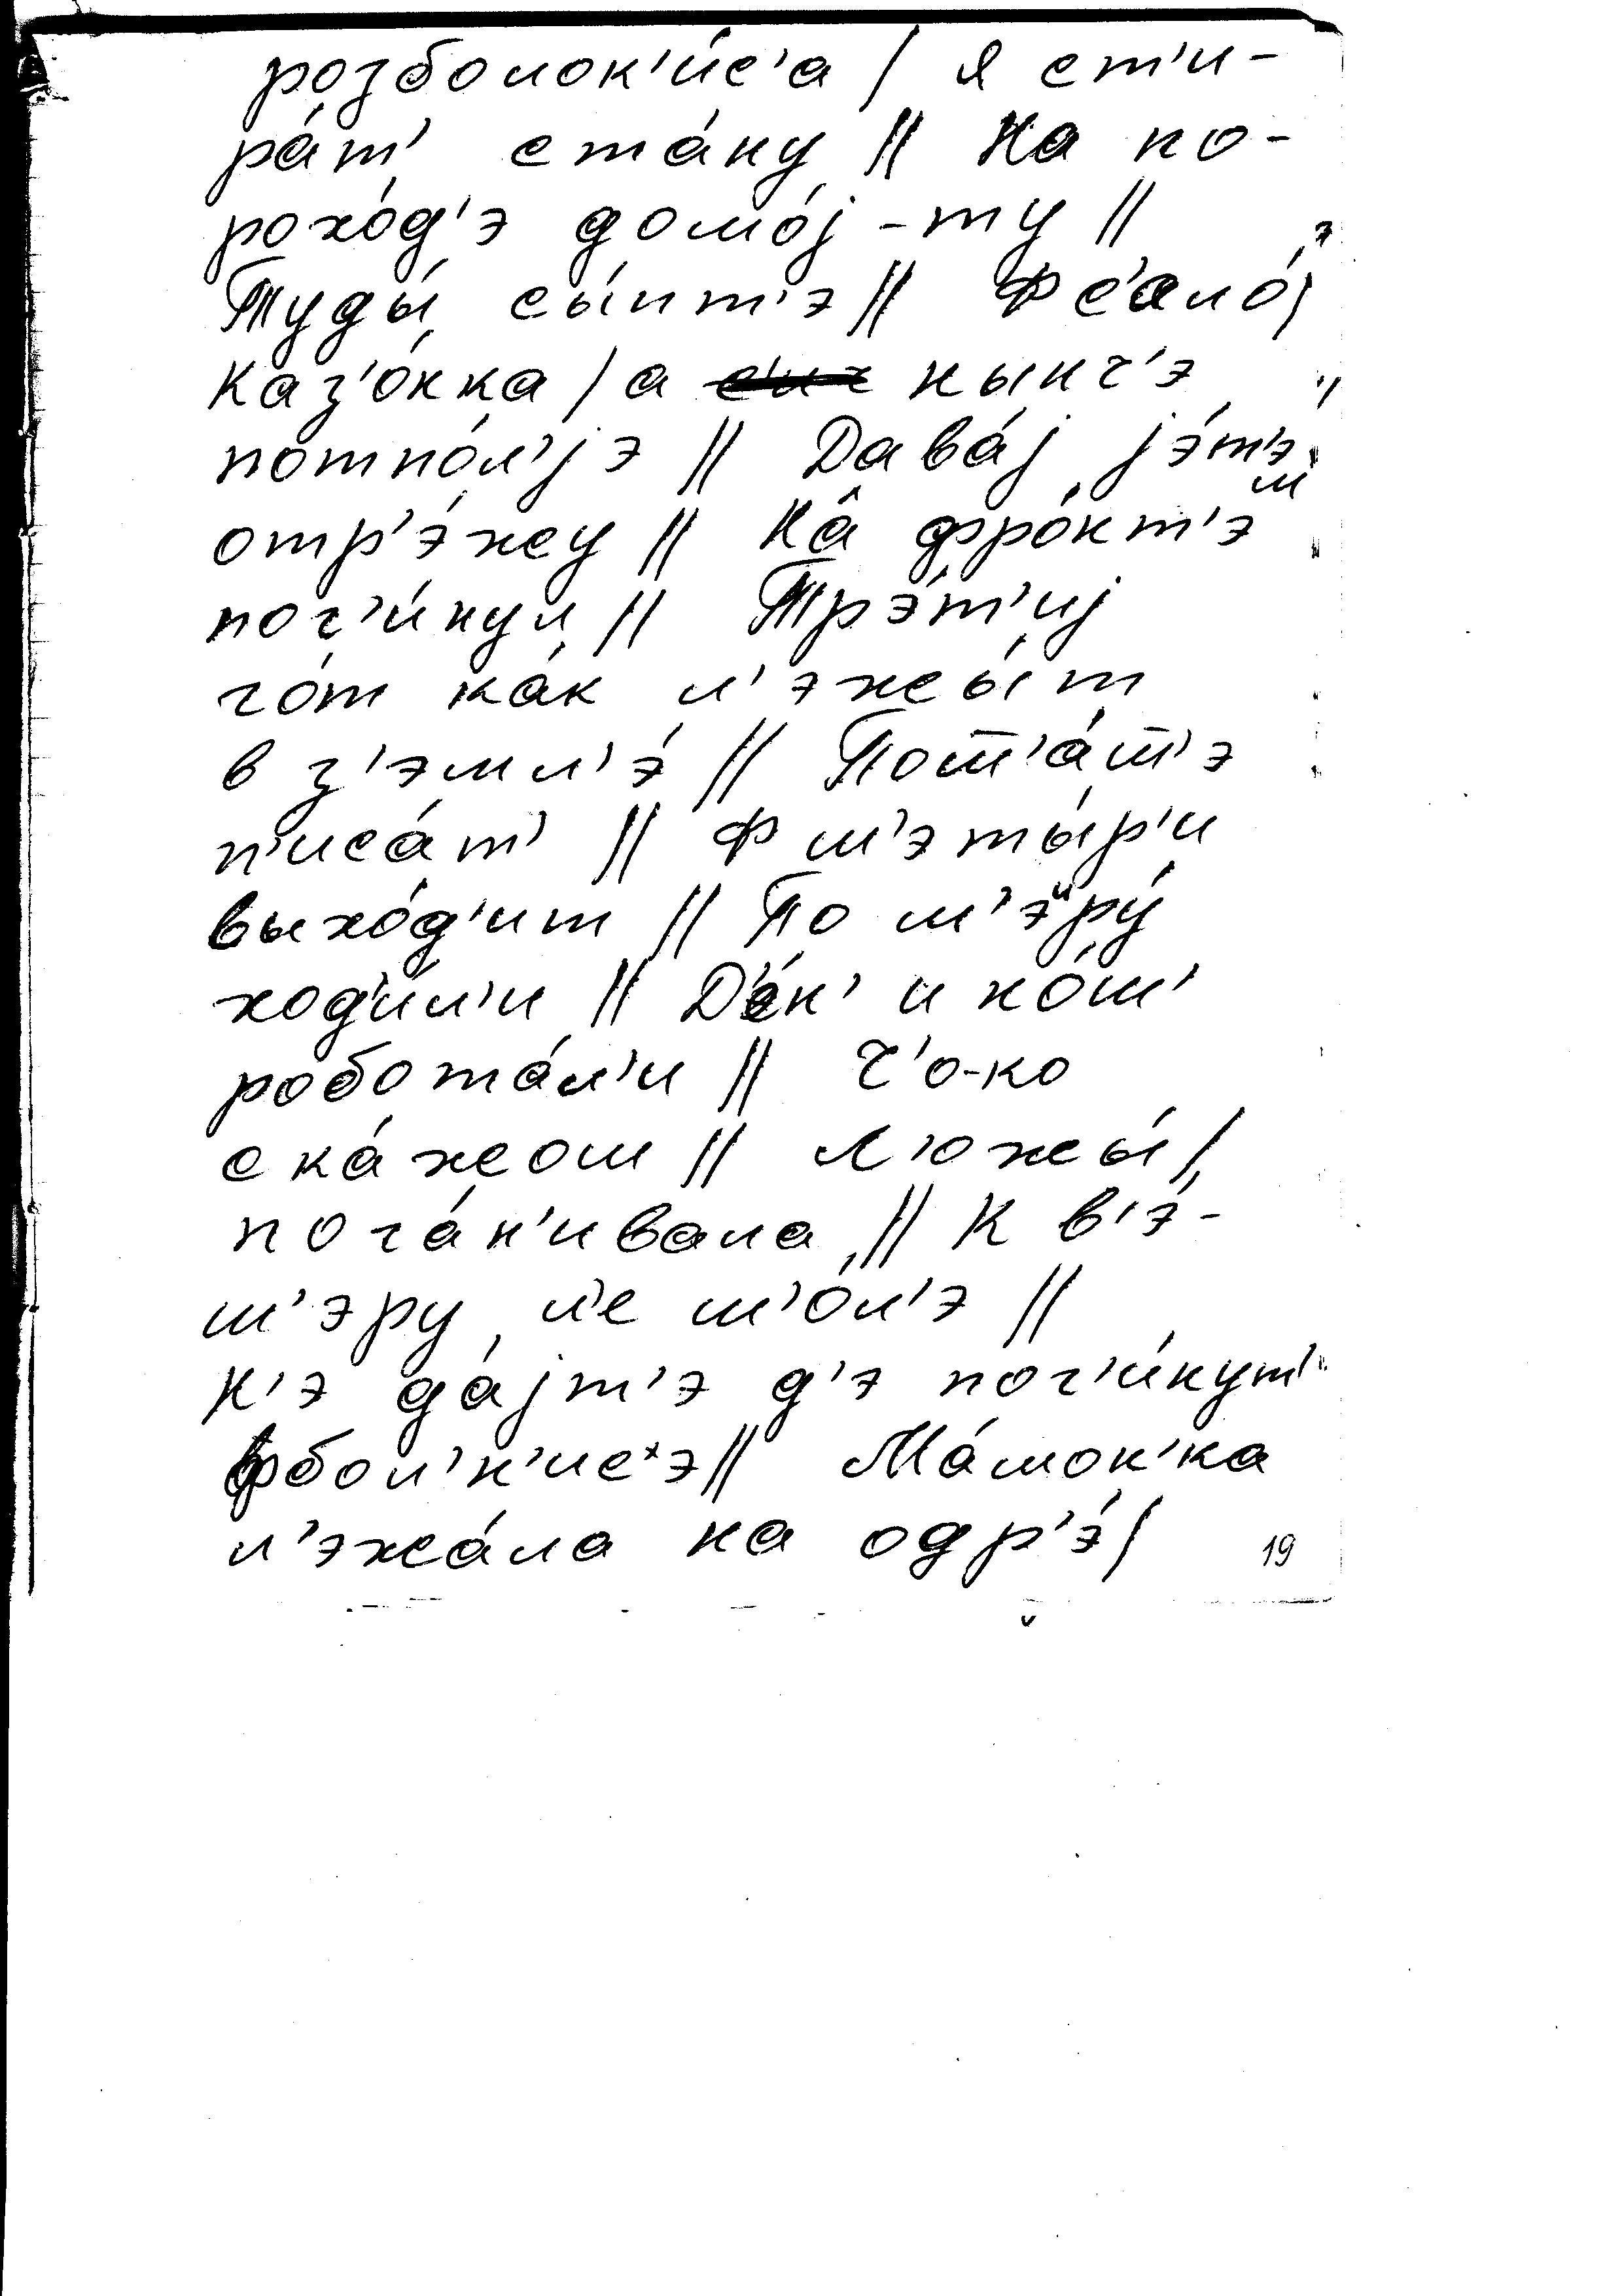 розболок'и́с'а / я ст'и-
ра́т' ста́ну // На по-
рохо́д'э домо́j-ту //
Туды́ сы́пт'э // Фс'ало́ /
каз'о́нка / а нынч'э
потпо́л'jэ // Дава́j jэ́т'э
отр'э́жу // На̂ фро́нт'э
пог'и́нул // Трэ́т'иj
го́т ка́к л'эжы́т
в з'эмл'э́ // Пот'а́т'э
п'иса́т' // Ф ш'эты́р'и
выхо́д'ит // По м'эиру́
ход'и́л'и // Д'э́н' и но́ш'
робота́л'и // Ч'о-ко
ска́жош // Л'южы́ /
пога́н'ивала // К в'э́-
ш'эру л'е ш'о́л'э //
Н'э да́jт'э д'э пог'и́нут'
фбол'н'иcэ // Ма́мон'ка
л'эжа́ла на одр'э́ /
19